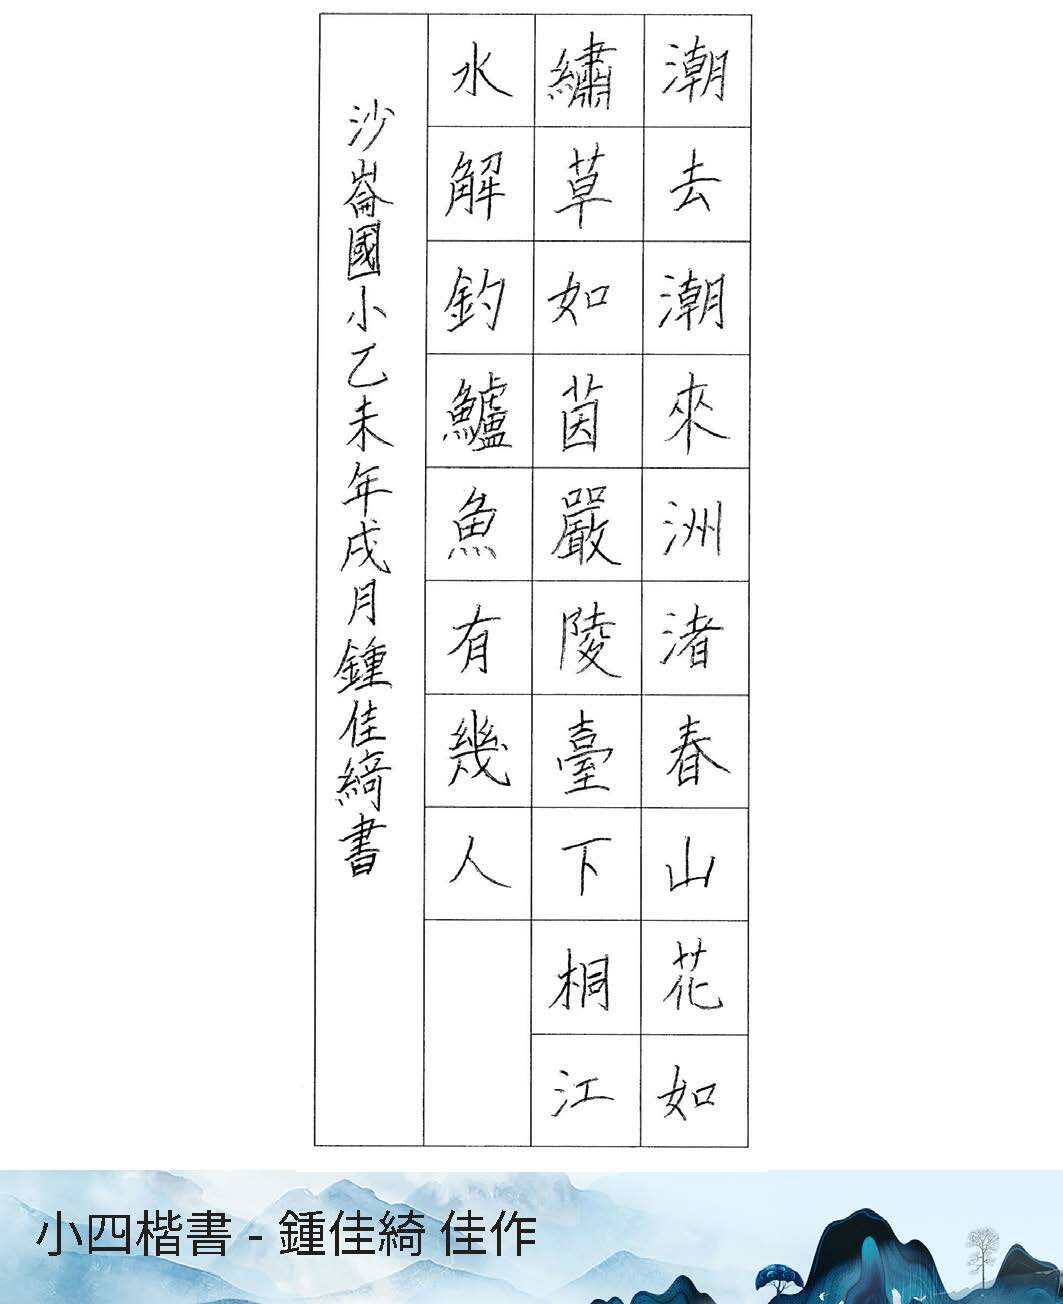 潮去潮來洲渚春山花如
繡草如茵嚴陵臺下桐江
水解釣鱸魚有幾人
沙崙國小乙未年戌月鍾佳綺書
小四楷書 - 鍾佳綺 佳作